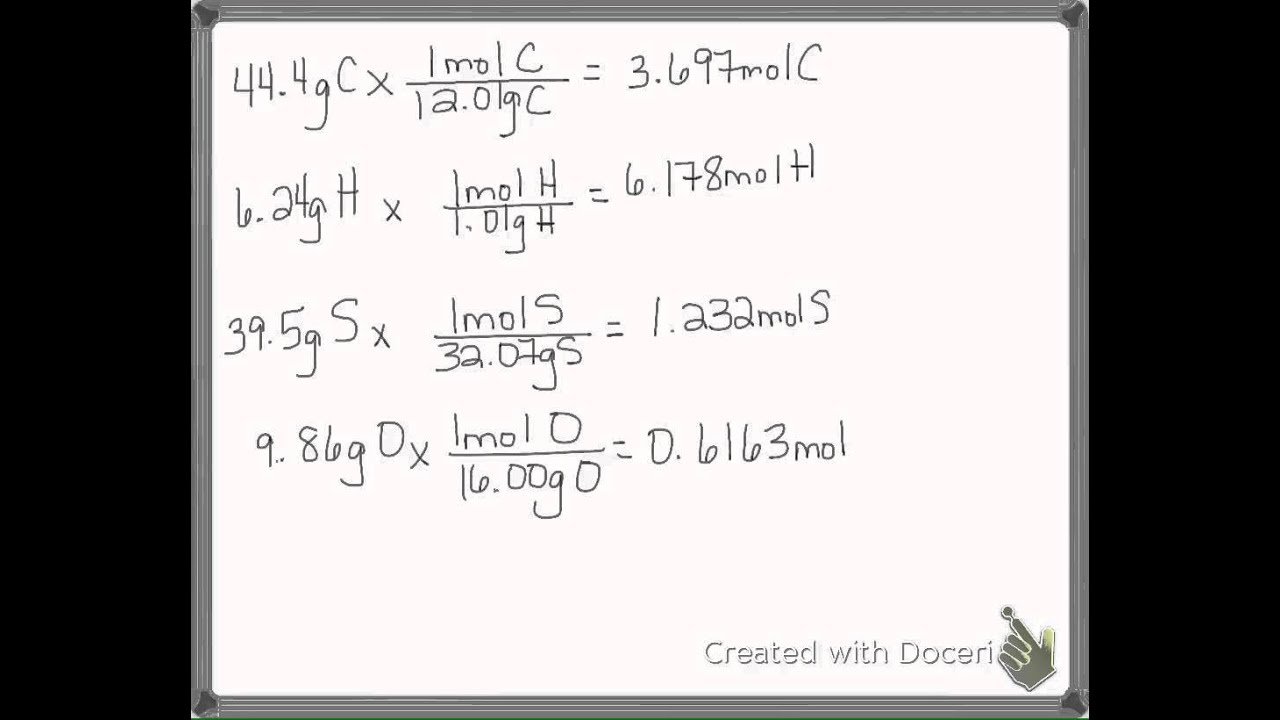 44.4gC x 1molC/12.01gC = 3.697molC
6.24gH x 1molH/1.01gH = 6.178molH
39.5gS x 1molS/32.07gS = 1.232molS
9.86gO x 1molO/16.00gO = 0.6163mol
Created with Doceri